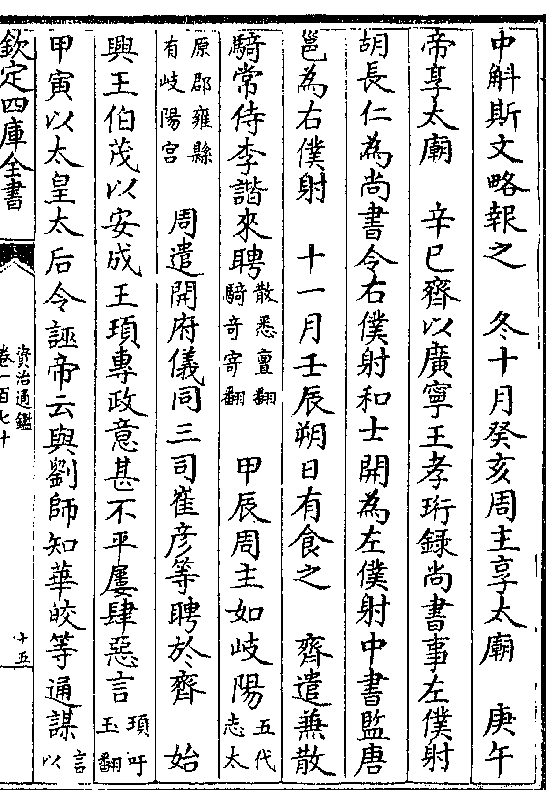 中斛斯文略報之　冬十月癸亥周主享太廟　庚午
帝享太廟　辛巳齊以廣寧王孝珩録尚書事左僕射
胡長仁為尚書令右僕射和士開為左僕射中書監唐
邕為右僕射　十一月壬辰朔日有食之　齊遣兼散
騎常侍李諧來聘散悉亶翻騎奇寄翻　甲辰周主如岐陽五代志太
原郡雍縣有岐陽宮　周遣開府儀同三司崔彦等聘於齊　始
興王伯茂以安成王頊專政意甚不平屢肆惡言頊吁玉翻
甲寅以太皇太后令誣帝云與劉師知華皎等通謀言以
欽定四庫全書
資治通鑑
卷一百七十
十五